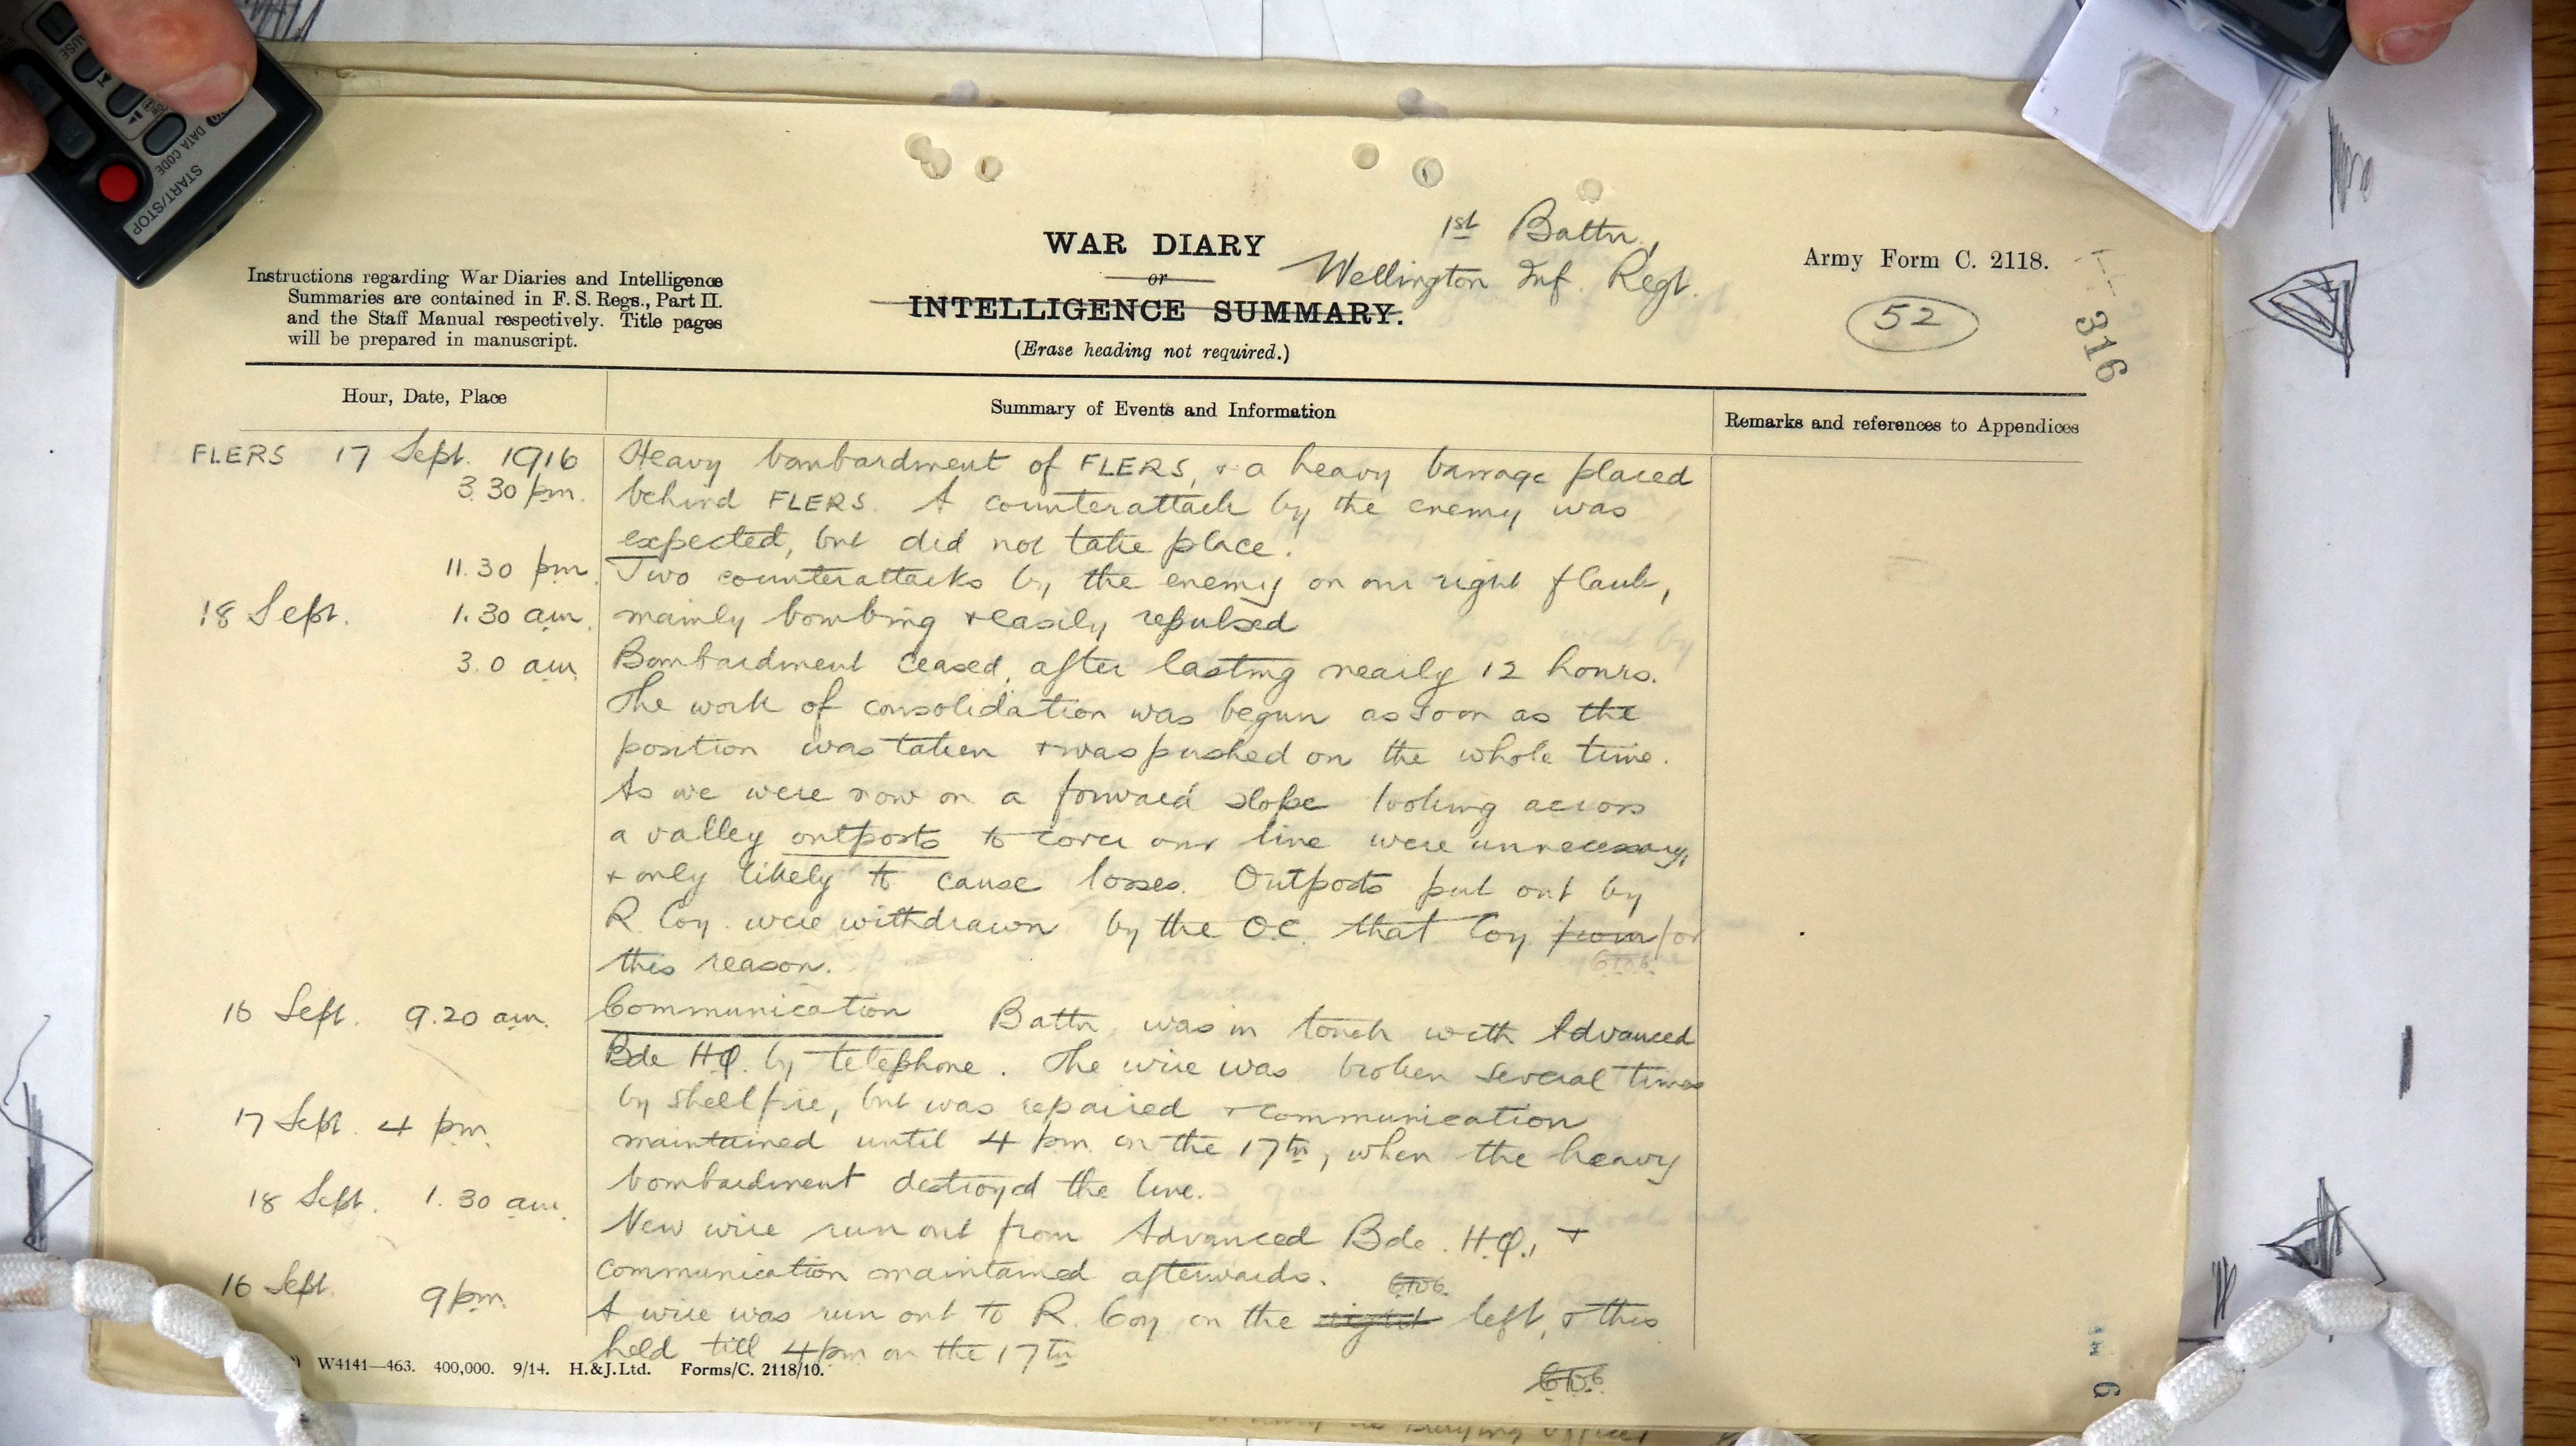 WAR DIARY
or
INTELLIGENCE SUMMARY.
(Erase heading not required.)
1st Battn,
Wellington Inf. Regt.
Army Form C. 2118.
52
316
Instructions regarding War Diaries and Intelligence
Summaries are contained in F. S. Regs., Part II.
and the Staff Manual respectively. Title pages
will be prepared in manuscript.
Hour, Date, Place
Summary of Events and Information
Remarks and references to Appendices
FLERS 17 Sept. 1916 Heavy bombardment of FLERS, + a heavy barrage placed
3.30 pm. behind FLERS. A counterattack by the enemy was
expected, but did not take place.
11.30 pm. Two counterattacks by the enemy on our right flank,
18 Sept. 1.30 am. mainly bombing + easily repulsed
3.0 am. Bombardment ceased, after lasting nearly 12 hours.
The work of consolidation was begun as soon as the
position was taken + was pushed on the whole time.
As we were now on a forward slope looking across
a valley outposts to cover our line were unnecessary,
+ only likely to cause losses. Outposts put out by
R. Coy. were withdrawn by the O.C. that Coy. from for
this reason.
16 Sept. 9.20 am. Communication Battn. was in touch with Advanced
Bde H.Q. by telephone. The wire was broken several times
by shellfire, but was repaired + communication
17 Sept. 4 pm. maintained until 4 pm. on the 17th, when the heavy
bombardment destroyed the line.
18 Sept. 1.30 am. New wire run out from Advanced Bde. H.Q., +
communication maintained afterwards.
16 Sept. 9 pm. A wire was run out to R. Coy. on the right left, + this
held till 4 pm on the 17th
W4141—463. 400,000. 9/14. H.&J.Ltd. Forms/C. 2118/10.
START/STOP
DATA CODE
6